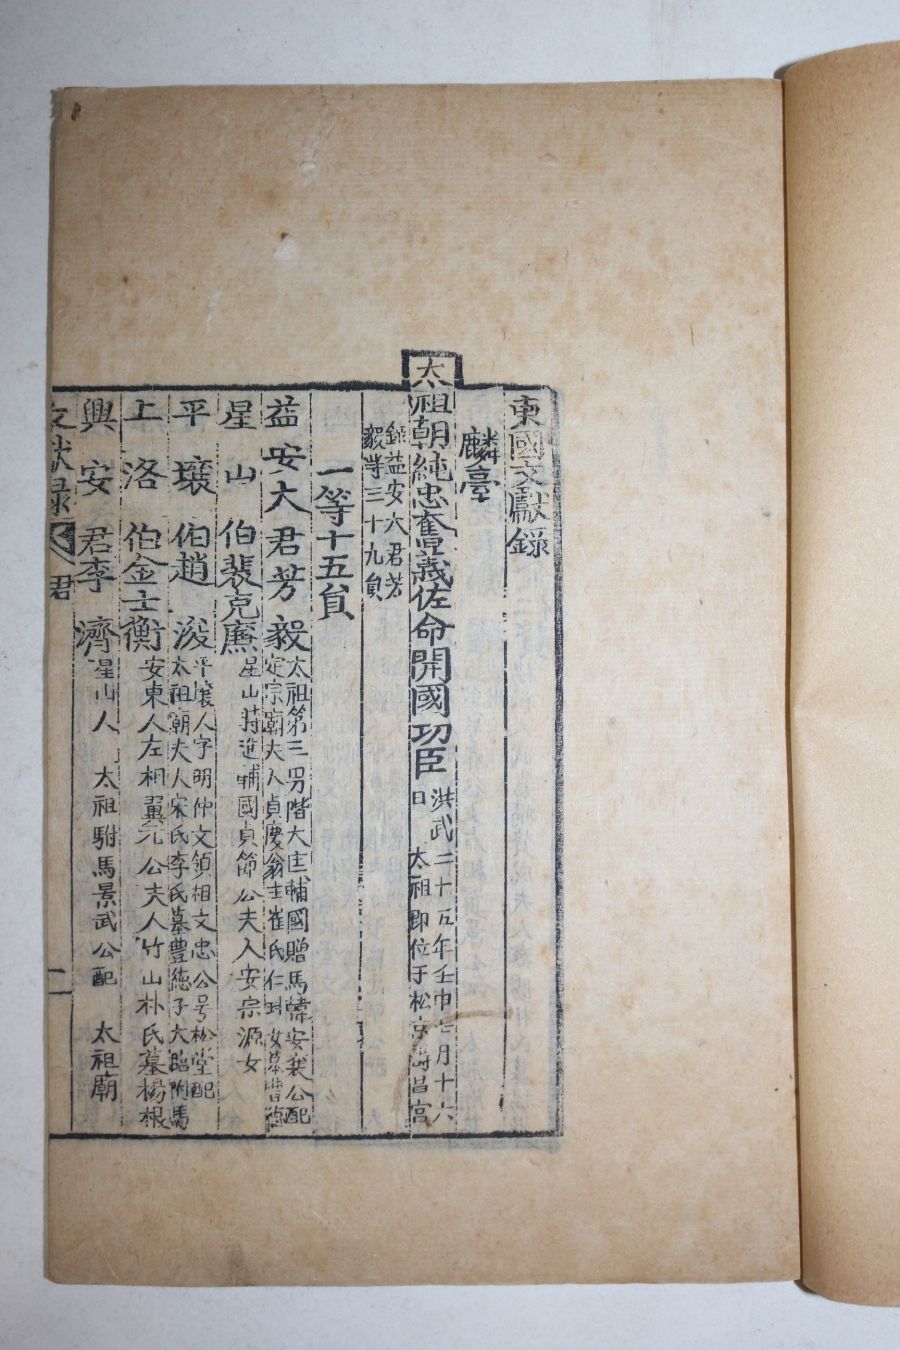 東國文獻錄
麟臺
太祖朝純忠奮義佐命開國功臣
洪武二十五年壬申七月十六
日 太祖即位于松京壽昌宮
錄益安大君芳
毅等三十九負
一等十五負
益安大君芳毅
太祖第三男階大匡輔國贈馬韓安襄公配
定宗廟夫人貞慶翁主崔氏仁㺶女墓豊德
星山伯裴克廉
星山蒔進輔國貞節公夫人安宗源女
平壤伯趙浚
平壤人字明仲文領相文忠公号松堂配
太祖廟夫人宋氏李氏墓豊德子大臨駙馬
上洛伯金士衡
安東人左相翼元公夫人竹山朴氏墓楊根
興安君李濟
星山人 太祖駙馬景武公配 太祖廟
文獻錄 君 二